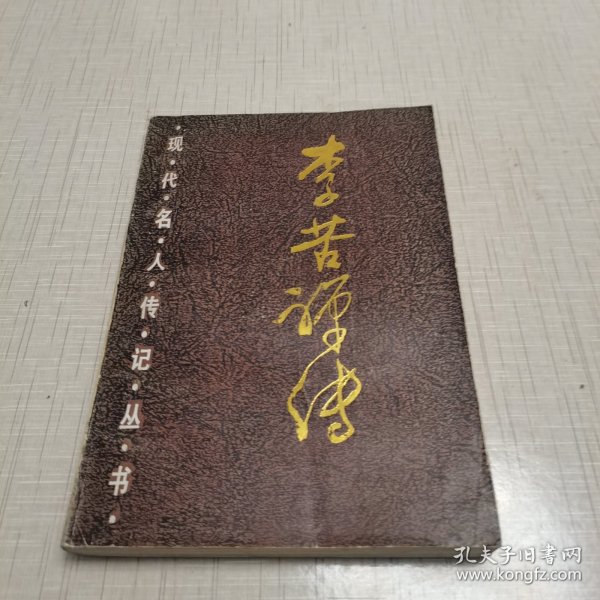 ·现·代·名·人·传·记·丛·书·
李苦禅傳
孔夫子旧书网
www.kongfz.com